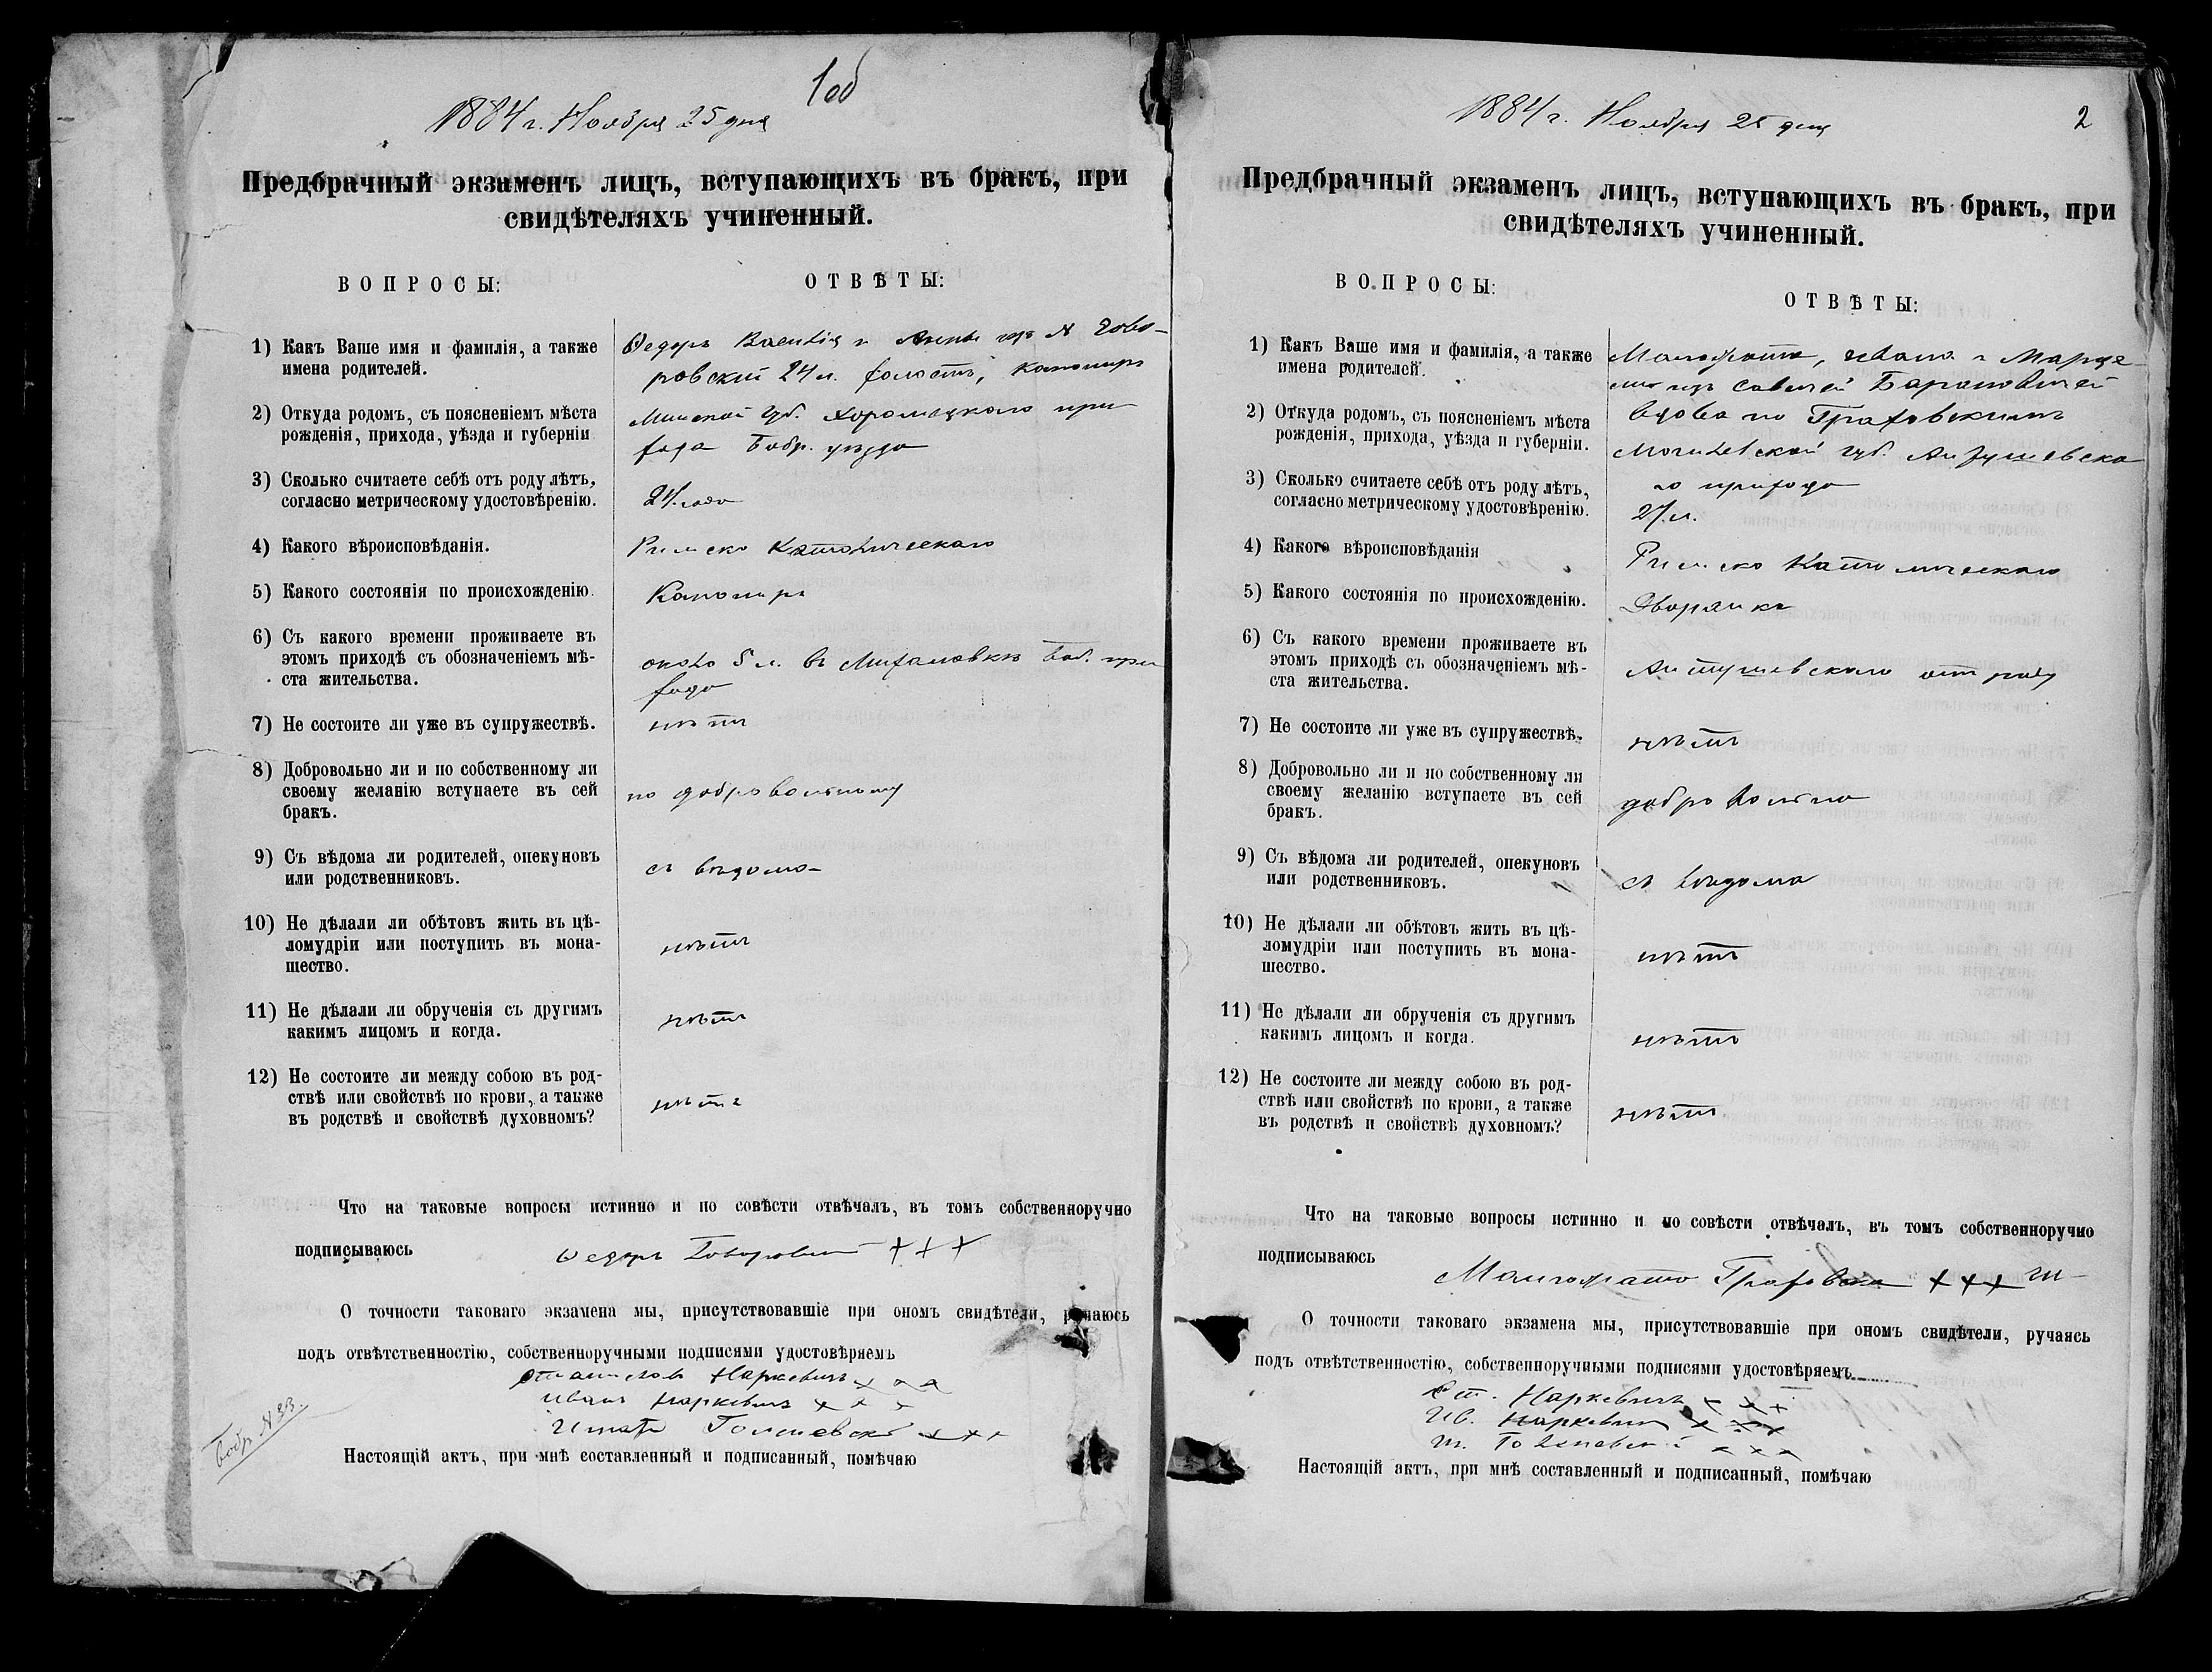 1об
1884 г. Ноября 25 дня
Предбрачный экзаменъ лицъ, вступающихъ въ бракъ, при
свидѣтеляхъ учиненный.
ВОПРОСЫ:
ОТВѢТЫ:
1) Какъ Ваше имя и фамилія, а также
имена родителей.
Ѳедоръ Василія и Анны Гово-
ровскій 24 л. холостъ, канониръ
2) Откуда родомъ, съ поясненіемъ мѣста
рожденія, прихода, уѣзда и губерніи
Минской губ. при
хода Бобр. уѣзда
3) Сколько считаете себѣ отъ роду лѣтъ,
согласно метрическому удостовѣренію.
24 года
4) Какого вѣроисповѣданія.
Римско Католическаго
5) Какого состоянія по происхожденію.
Канониръ
6) Съ какого времени проживаете въ
этомъ приходѣ съ обозначеніемъ мѣ-
ста жительства.
около 5 л. въ Михаловкѣ Боб. при
хода
7) Не состоите ли уже въ супружествѣ.
нѣтъ
8) Добровольно ли и по собственному ли
своему желанію вступаете въ сей
бракъ.
по добровольному
9) Съ вѣдома ли родителей, опекуновъ
или родственниковъ.
съ вѣдома
10) Не дѣлали ли обѣтовъ жить въ цѣ-
ломудріи или поступить въ мона-
шество.
нѣтъ
11) Не дѣлали ли обрученія съ другимъ
какимъ лицомъ и когда.
нѣтъ
12) Не состоите ли между собою въ род-
ствѣ или свойствѣ по крови, а также
въ родствѣ и свойствѣ духовномъ?
нѣтъ
Что на таковые вопросы истинно и по совѣсти отвѣчалъ, въ томъ собственноручно
подписываюсь Ѳедоръ Говоровскій +++
О точности таковаго экзамена мы, присутствовавшіе при ономъ свидѣтели, ручаюсь
подъ отвѣтственностію, собственноручными подписями удостовѣряемъ
Станиславъ Наркевичъ x x x
Иванъ Наркевичъ x x x
x x x
Бобр. N 33.
Настоящій актъ, при мнѣ составленный и подписанный, помѣчаю
1884 г. Ноября 25 дня
2
Предбрачный экзаменъ лицъ, вступающихъ въ бракъ, при
свидѣтеляхъ учиненный.
ВОПРОСЫ:
ОТВѢТЫ:
1) Какъ Ваше имя и фамилія, а также
имена родителей.
Ивана и Марце-
изъ Барановичей
2) Откуда родомъ, съ поясненіемъ мѣста
рожденія, прихода, уѣзда и губерніи.
вдова по Граховскимъ
Могилевской губ.
го прихода
3) Сколько считаете себѣ отъ роду лѣтъ,
согласно метрическому удостовѣренію.
27 л.
4) Какого вѣроисповѣданія
Римско Католическаго
5) Какого состоянія по происхожденію.
Дворянка
6) Съ какого времени проживаете въ
этомъ приходѣ съ обозначеніемъ мѣ-
ста жительства.
Антушевскаго отъ роду
7) Не состоите ли уже въ супружествѣ.
нѣтъ
8) Добровольно ли и по собственному ли
своему желанію вступаете въ сей
бракъ.
добровольно
9) Съ вѣдома ли родителей, опекуновъ
или родственниковъ.
съ вѣдома
10) Не дѣлали ли обѣтовъ жить въ цѣ-
ломудріи или поступить въ мона-
шество.
нѣтъ
11) Не дѣлали ли обрученія съ другимъ
какимъ лицомъ и когда.
нѣтъ
12) Не состоите ли между собою въ род-
ствѣ или свойствѣ по крови, а также
въ родствѣ и свойствѣ духовномъ?
нѣтъ
Что на таковые вопросы истинно и по совѣсти отвѣчалъ, въ томъ собственноручно
подписываюсь
Граховска +++
О точности таковаго экзамена мы, присутствовавшіе при ономъ свидѣтели, ручаясь
подъ отвѣтственностію, собственноручными подписями удостовѣряемъ
Ст. Наркевичъ x x x
Ив. Наркевичъ x x x
x x x
Настоящій актъ, при мнѣ составленный и подписанный, помѣчаю